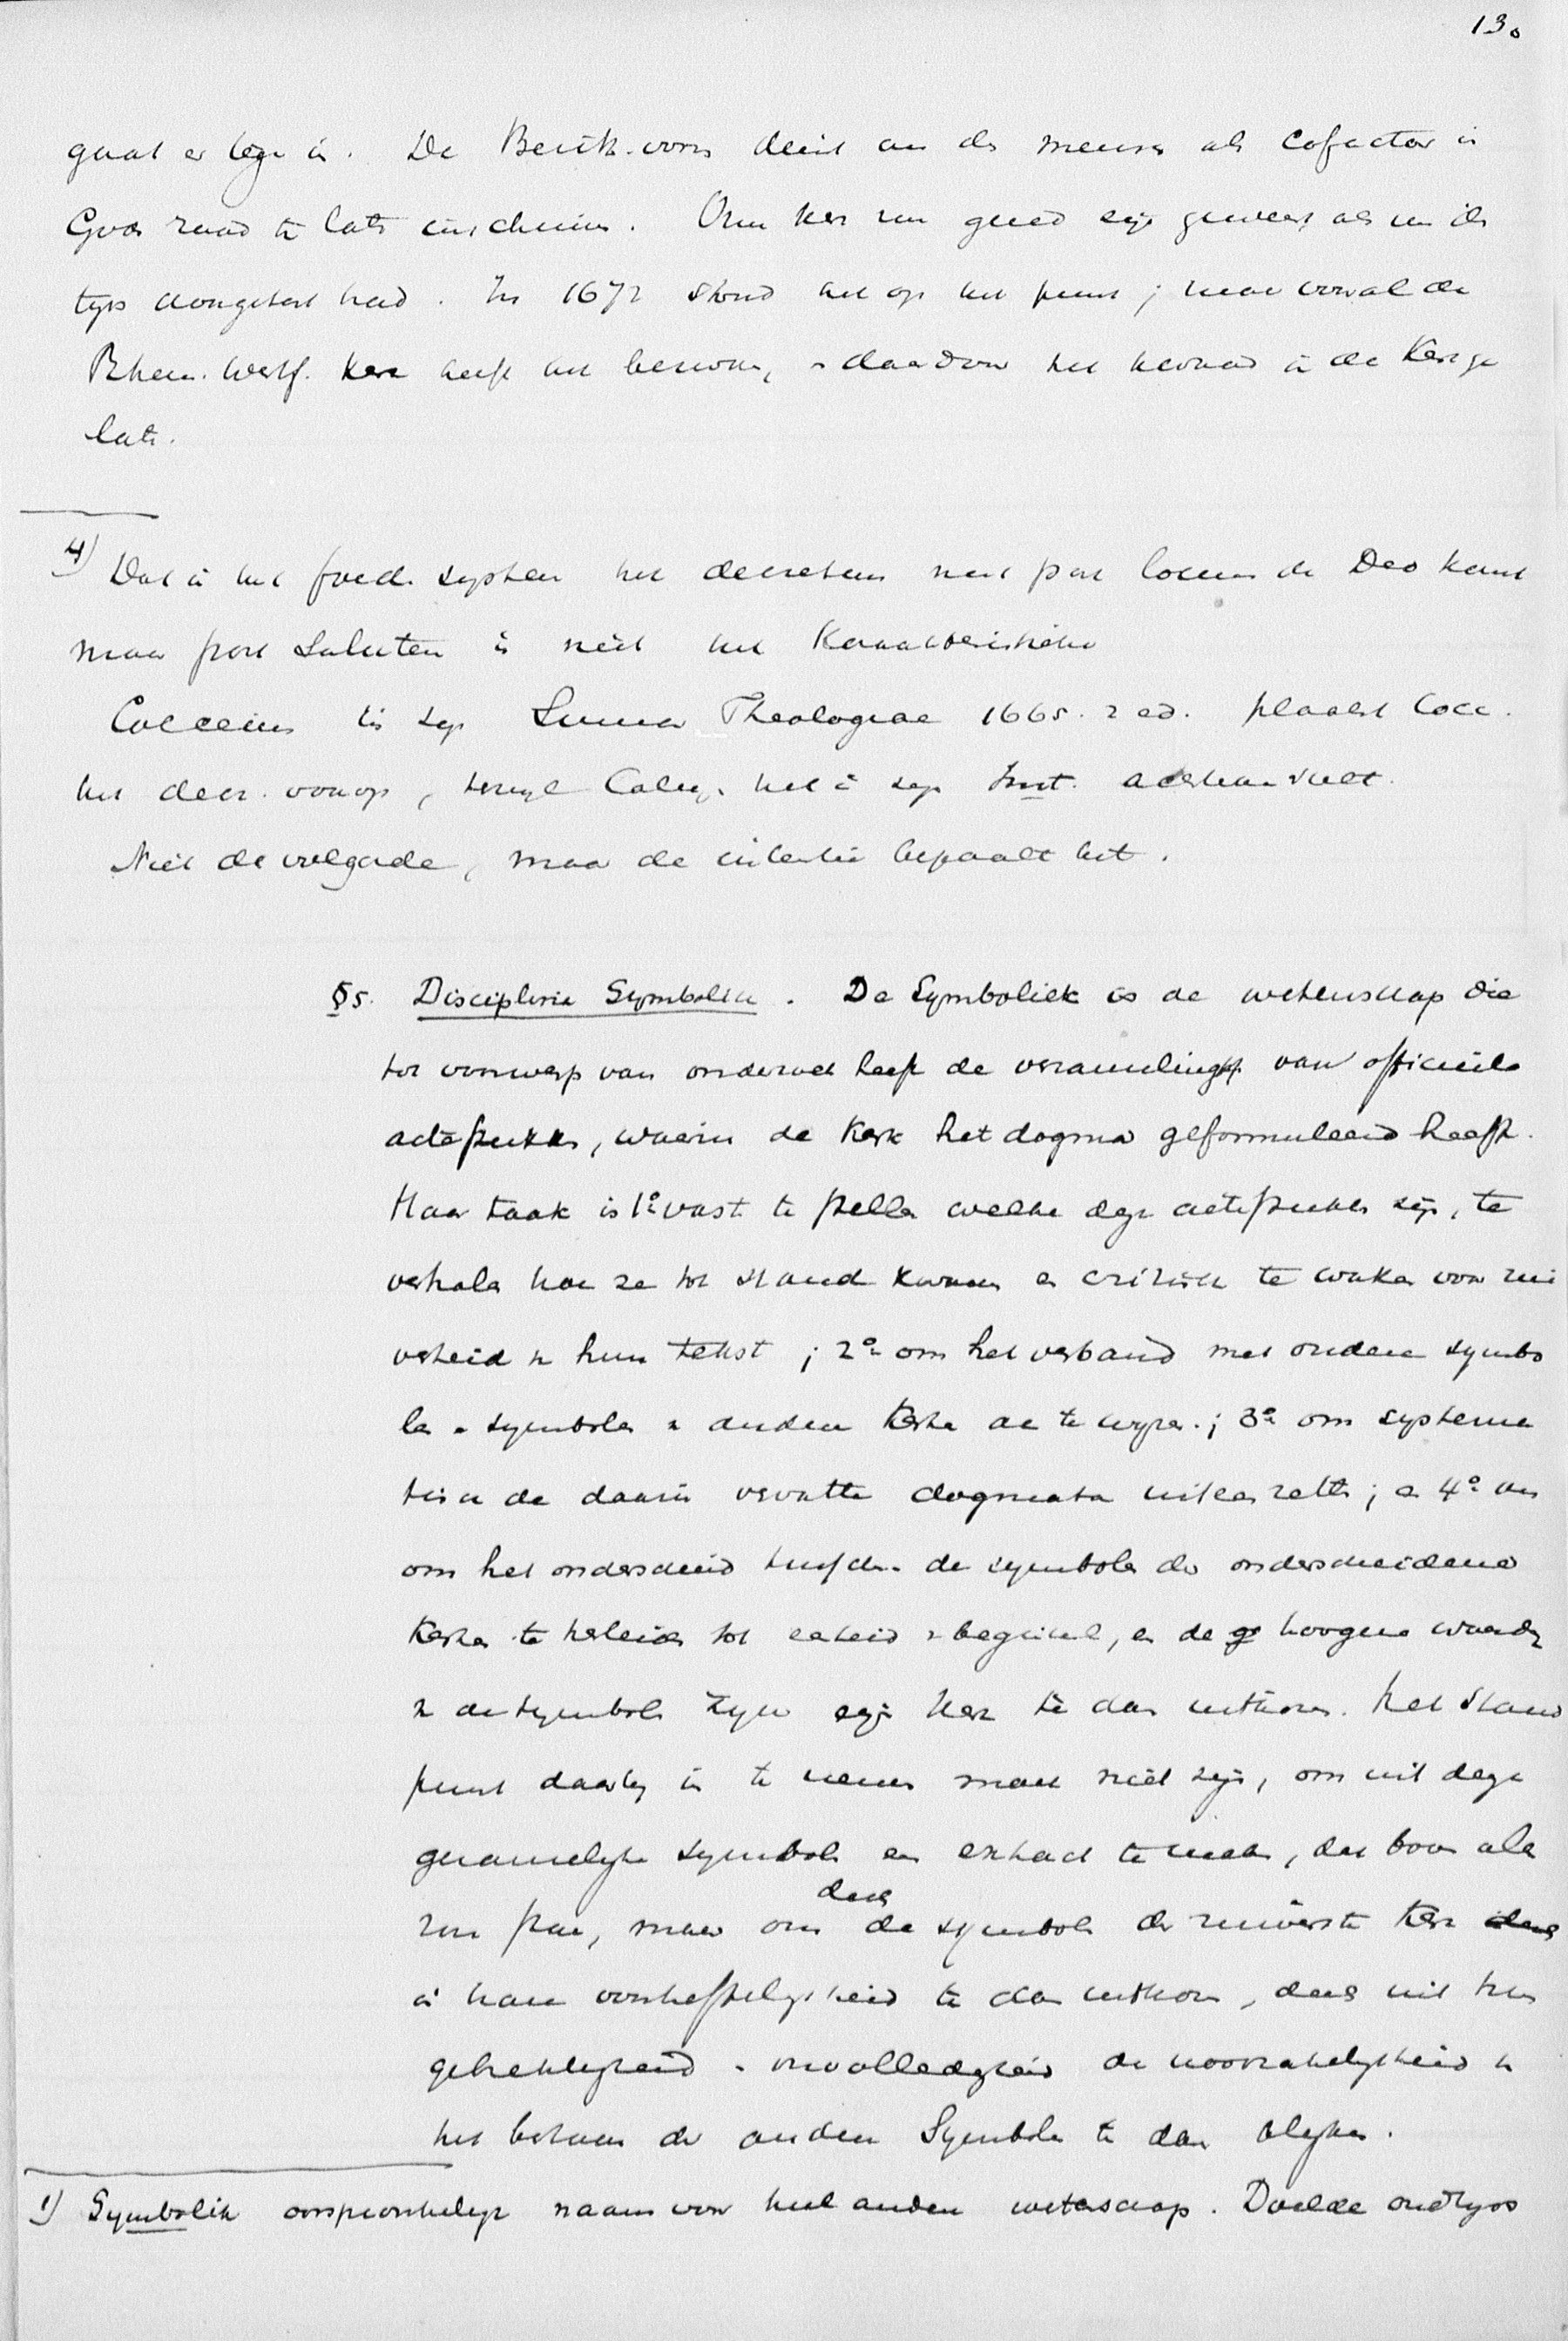 13.
gaat er tegen in. De Berith-vorm dient om de mensch als Cofactor in
Gods raad te laten inschuiven. Onze kerk zou goed zijn geweest als
tijds aangetast had. In 1672 stond het op het punt; maar vooral de
Rhein. Westf. Kerk heeft het, daardoor het in de Kerk ge
laten.
4) Dat in het foed. systeem het decretum niet post locum de Deo komt
maar post Salutem is niet het Karakteristieke
Cocceius in zijn Summa Theologiae 1665. 2 ed. plaatst Cocc.
het decr. voorop, terwijl Calv. het in zijn Inst. achteraan stelt.
Niet de volgorde, maar de intentie bepaalt het.
§5. Disciplina Symbolica. De Symboliek is de wetenschap die
tot voorwerp van onderzoek heeft de verzameling van officieele
actestukken, waarin de Kerk het dogma geformuleerd heeft.
Haar taak is 1o vast te stellen welke deze actestukken zijn, te
verhalen hoe ze tot stand kwamen en critisch te waken voor zui
verheid v hun tekst; 2o om het verband met oudere symbo
len en symbolen v andere Kerken aan te wijzen; 3o om systema
tisch de daarin vervatte dogmata uiteen zetten; en 4o
om het onderscheid tusschen de symbolen der onderscheidene
Kerken te herleiden tot eenheid v beginsel, en de hoogere waarde
v de symbolen eigen Kerk te doen uitkomen. Het stand
punt daarbij in te nemen moet niet zijn, om uit deze
gezamenlijke symbolen een extract te maken, dat boven alle
zou staan, maar om deels de symbolen der zuiverste Kerk
in hare voortreffelijkheid te doen uitkomen, deels uit hun
gebrekkigheid en onvolledigheid de noodzakelijkheid v
het bestaan der andere Symbolen te doen blijken.
1) Symboliek oorspronkelijk naam voor heel andere wetenschap. Doelde oudtijds